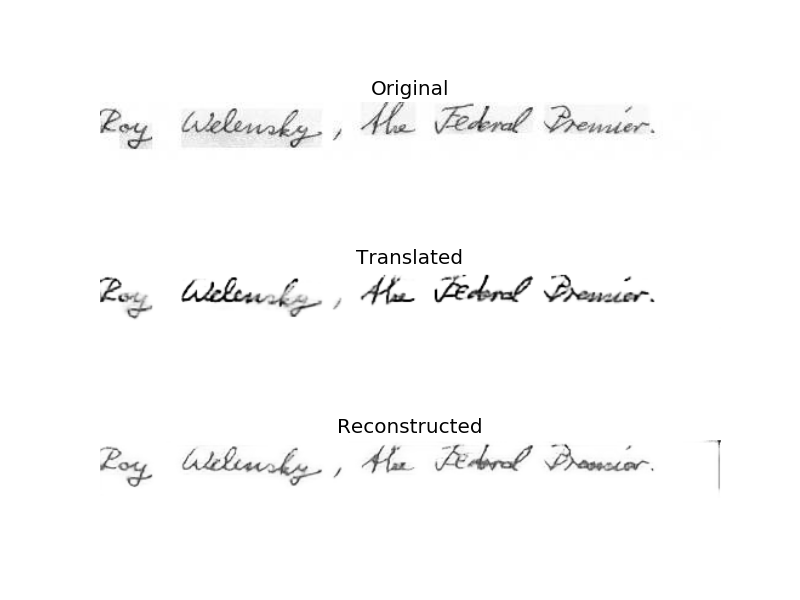 Original
Roy Welensky, the Federal Premier.
Translated
Roy Welensky, the Federal Premier.
Reconstructed
Roy Welensky, the Federal Premier.